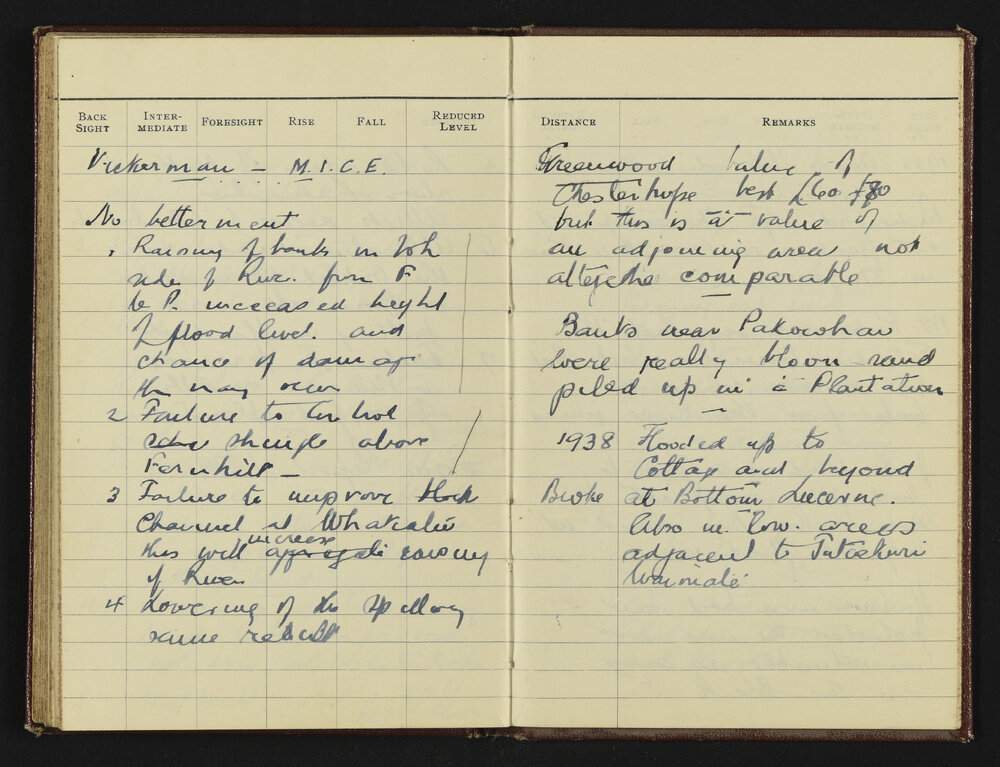 BACK SIGHT INTER-MEDIATE FORESIGHT RISE FALL REDUCED LEVEL
Vickerman - M.I.C.E.
No betterment
1 Raising of banks on both
side of River from F
to P. increased height
of flood level and
chance of damage
may occur
2 Failure to control
shingle above
Fernhill -
3 Failure to improve
Channel at Whakatu
this will increase raising
of River
4 Lowering of the Spillway
same result
DISTANCE REMARKS
Greenwood value of
Chesterhope best £60 £80
but this is "a" value of
an adjoining area not
altogether comparable
Banks near Pakowhai
were really blown sand
piled up in a Plantation
1938 Flooded up to
Cottage and beyond
Broke at Bottom Lucerne.
Also in low areas
adjacent to Tutaekuri
Waimate